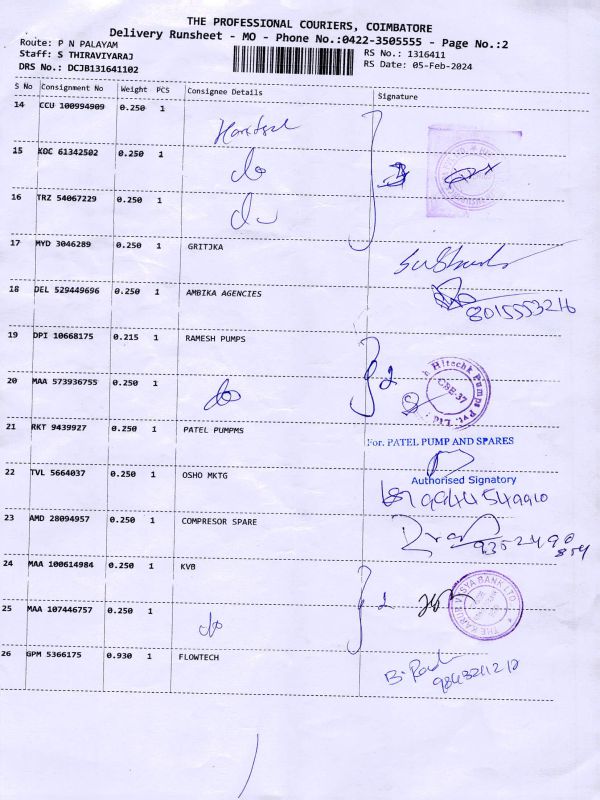 THE PROFESSIONAL COURIERS, COIMBATORE
Delivery Runsheet - MO - Phone No.:0422-3505555 - Page No.:2
Route: P N PALAYAM
Staff: S THIRAVIYARAJ
DRS No.: DCJB131641102
RS No.: 1316411
RS Date: 05-Feb-2024
S No Consignment No Weight PCS Consignee Details Signature
14 CCU 100994909 0.250 1
15 KOC 61342502 0.250 1 do
16 TRZ 54067229 0.250 1 do
17 MYD 3046289 0.250 1 GRITJKA
18 DEL 529449696 0.250 1 AMBIKA AGENCIES 8015553216
19 DPI 10668175 0.215 1 RAMESH PUMPS
Hitechk Pumps Pvt. Ltd. CBE-37
20 MAA 573936755 0.250 1 do
21 RKT 9439927 0.250 1 PATEL PUMPMS
For. PATEL PUMP AND SPARES
Authorised Signatory
22 TVL 5664037 0.250 1 OSHO MKTG 9944549910
23 AMD 28094957 0.250 1 COMPRESOR SPARE
24 MAA 100614984 0.250 1 KVB
THE KARUR VYSYA BANK LTD
25 MAA 107446757 0.250 1 do
26 GPM 5366175 0.930 1 FLOWTECH